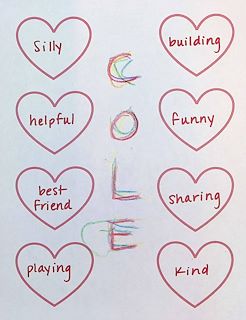 Silly
building
helpful
funny
best
friend
sharing
playing
kind
C
O
L
E